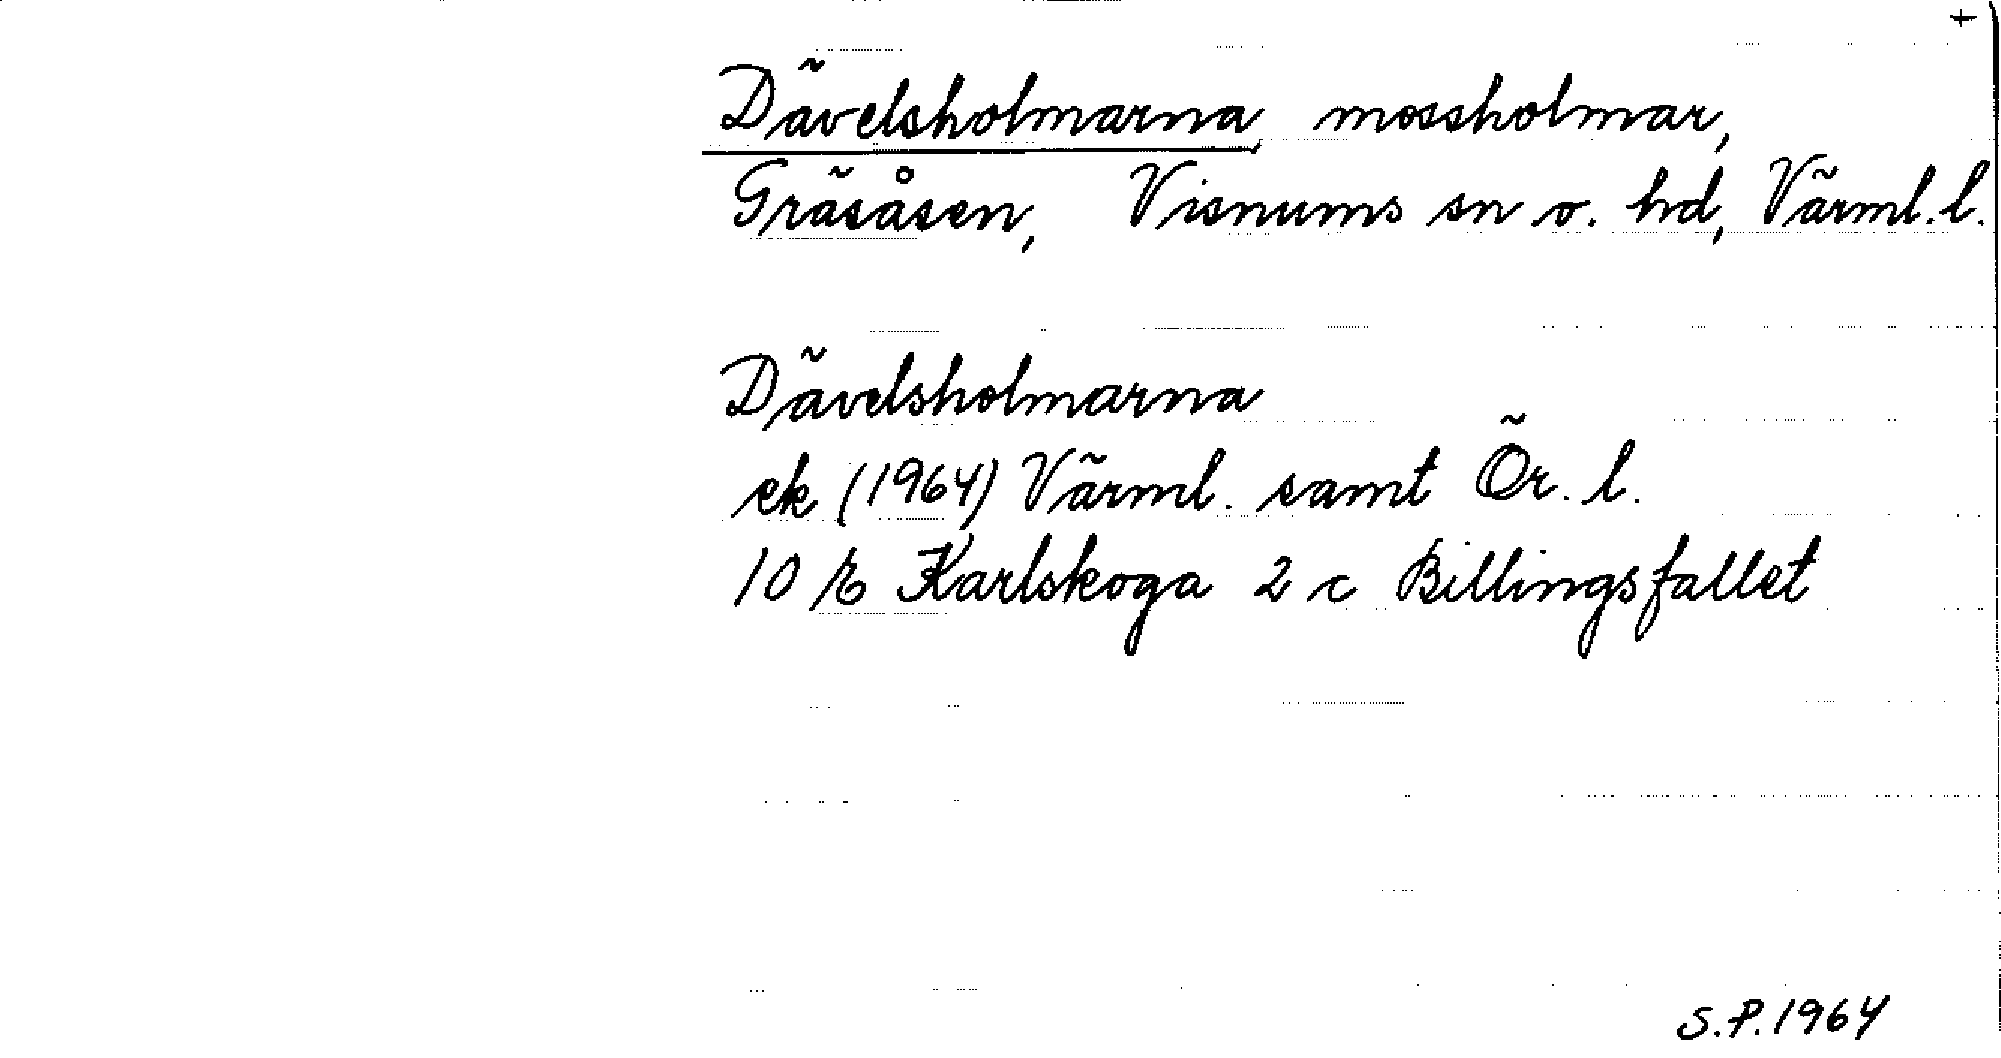 +
Dävelsholmarna, mossholmar,
Gräsåsen, Visnums sn o. hd, Värml. l.
Dävelsholmarna
ek (1964) Värml. samt Ör. l.
10 E Karlskoga 2 c Billingsfallet
S.P. 1964